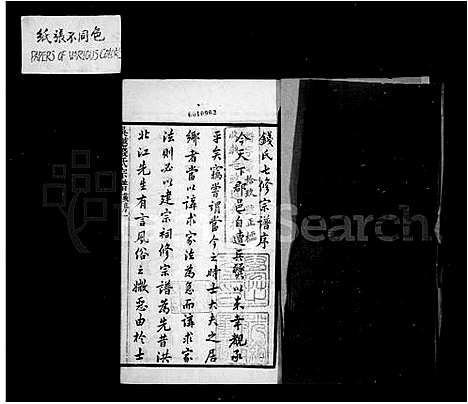 纸張不同色
PAPERS OF VARIOUS COLORS
錢氏七修宗譜序
今天下郡邑自遭兵燹以來幸覩承
平矣竊嘗謂當今之時士大夫之居
鄉者當以講求家法為急而講求家
法則必以建宗祠修宗譜為先昔洪
北江先生有言風俗之敝惡由於士
Search